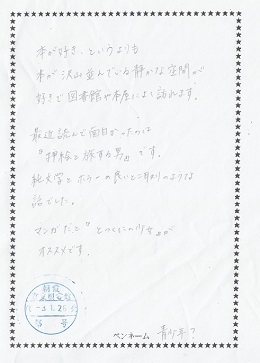 本が好き、というよりも
本が沢山並んでいる静かな空間が
好きで図書館や本屋によく訪れます。
最近読んで面白かったのは
『押絵と旅する男』です。
純文学とホラーの良いとこ取りのような
話でした。
マンガだと『とつくにの少女』が
オススメです。
ペンネーム 青少年?